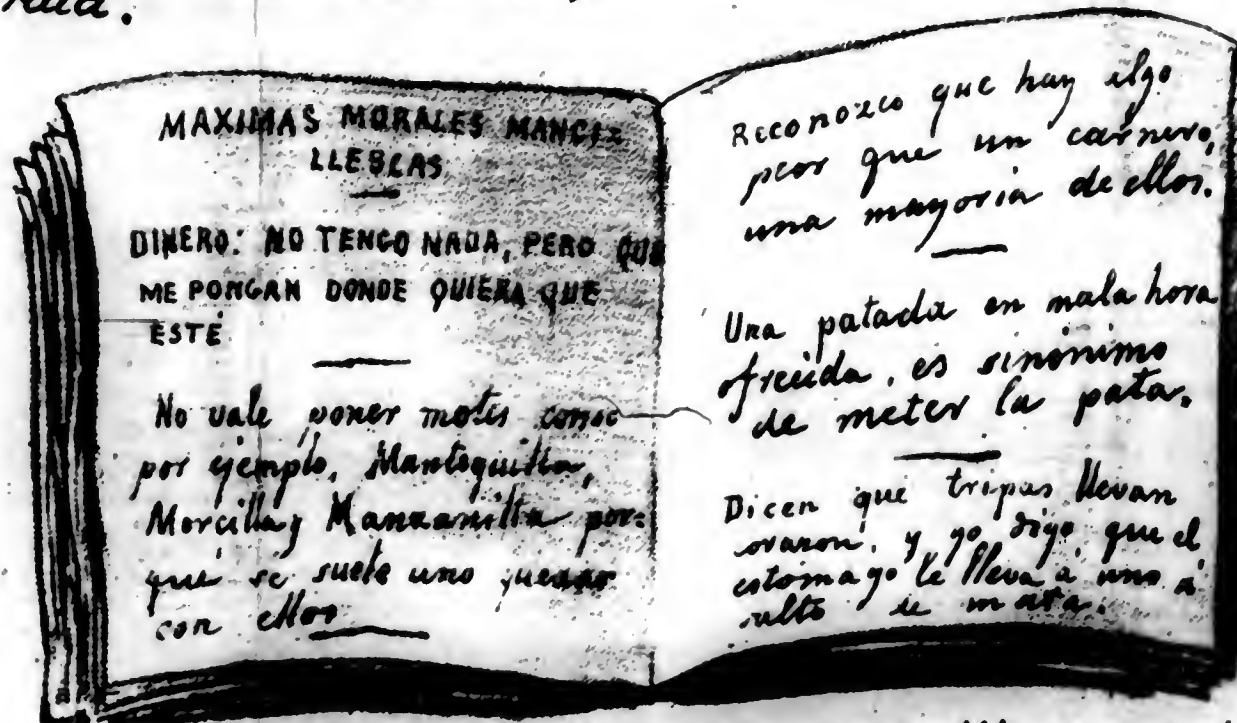 MAXIMAS MORALES MANCI=
LLEBCAS
DINERO: NO TENGO NADA, PERO QUE
ME PONGAN DONDE QUIERA QUE
ESTÉ
No vale poner motes como
por ejemplo, Mantequilla,
Morcilla y Manzanilla por=
qué se suele uno quedar
con ellos
Reconozco que hay algo
peor que un carnero,
una mayoria de ellos.
Una patada en mala hora
ofrecida, es sinónimo
de meter la pata.
Dicen que tripas llevan
orazon, y yo digo, que el
estomago le lleva a uno a
salto de mata.